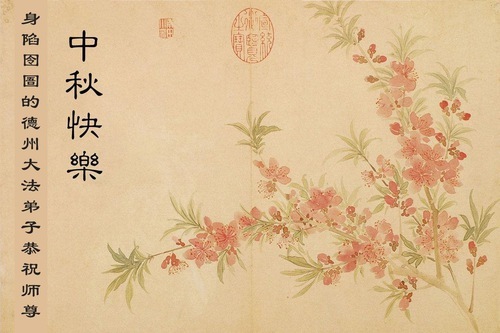 身陷囹圄的德州大法弟子恭祝师尊
中秋快樂